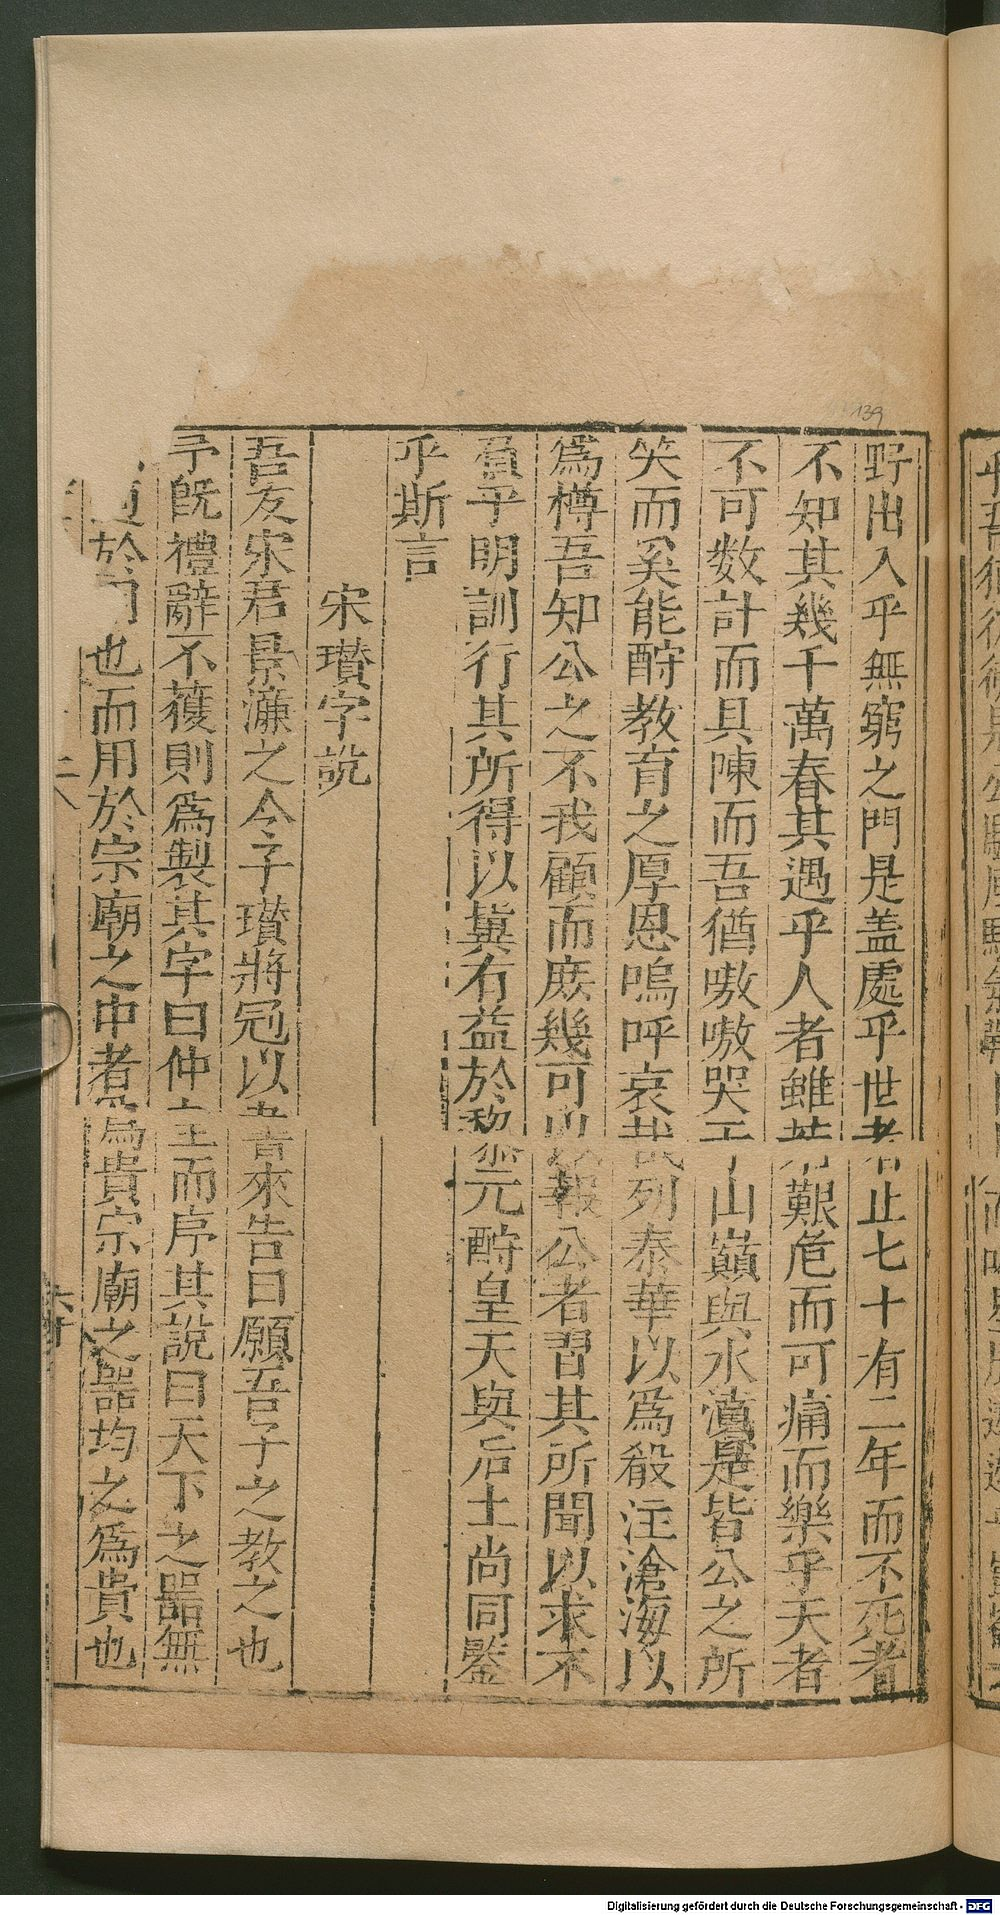 139
野出入乎無窮之門是盖處乎世者止七十有二年而不死者
不知其幾千萬春其遇乎人者雖艱危而可痛而樂乎天者
不可数計而具陳而吾猶嗷嗷哭于山巔與水濆是皆公之所
笑而奚能酧教育之厚恩嗚呼哀哉列泰華以爲殽注滄海以
爲樽吾知公之不我顧而庻幾可以報公者習其所聞以求不
負乎明訓行其所得以冀有益於黎元酧皇天與后土尚同鑒
乎斯言
宋瓚字說
吾友宋君景濂之令子瓚將冠以書來告曰願吾子之教之也
予旣禮辭不獲則爲製其字曰仲圭而序其說曰天下之器無
適於用也而用於宗廟之中者爲貴宗廟之器均之爲貴也
Digitalisierung gefördert durch die Deutsche Forschungsgemeinschaft - DFG